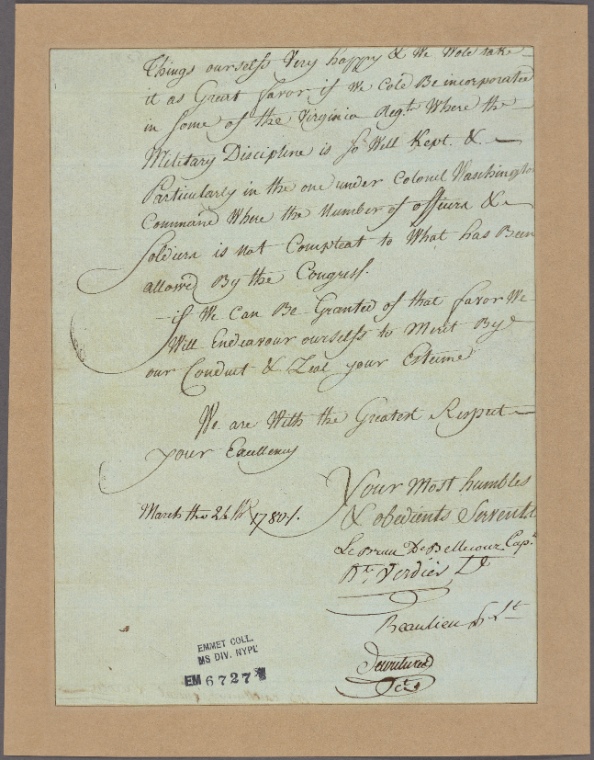 Things ourselfs Very happy & We Wole take
it as Great favor if We Cole Be incorporated
in Some of the Virginia Regts Where the
Military Discipline is So Well Kept. &
Particularly in the one under Colonel Vashington
Command Where the Number of officers &
Soldiers is not Compleat to What has Been
allowed By the Congress.
if We Can Be Granted of that favor We
Will Endeavour ourselfs to Merit By
our Conduct & Zeal your Esteeme
We are With the Greatest Respect
your Excellency
Your Most humbles
& obedients Servents
March the 26th 1780.
Le Brun De Bellecour Capn
Verdier Lt
Beaulieu Lt
EMMET COLL.
MS DIV. NYPL
EM 6727